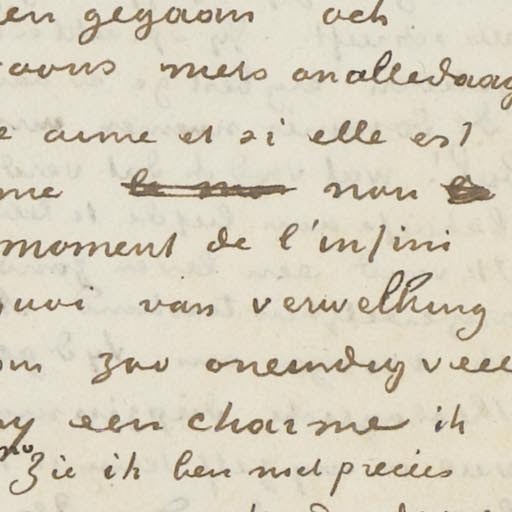 en gegaan och
iets onalledaag
aime et si elle est
me non
moment de l'infini
van verwelking
zoo oneindig veel
een charme ik
Zie ik ben niet precies